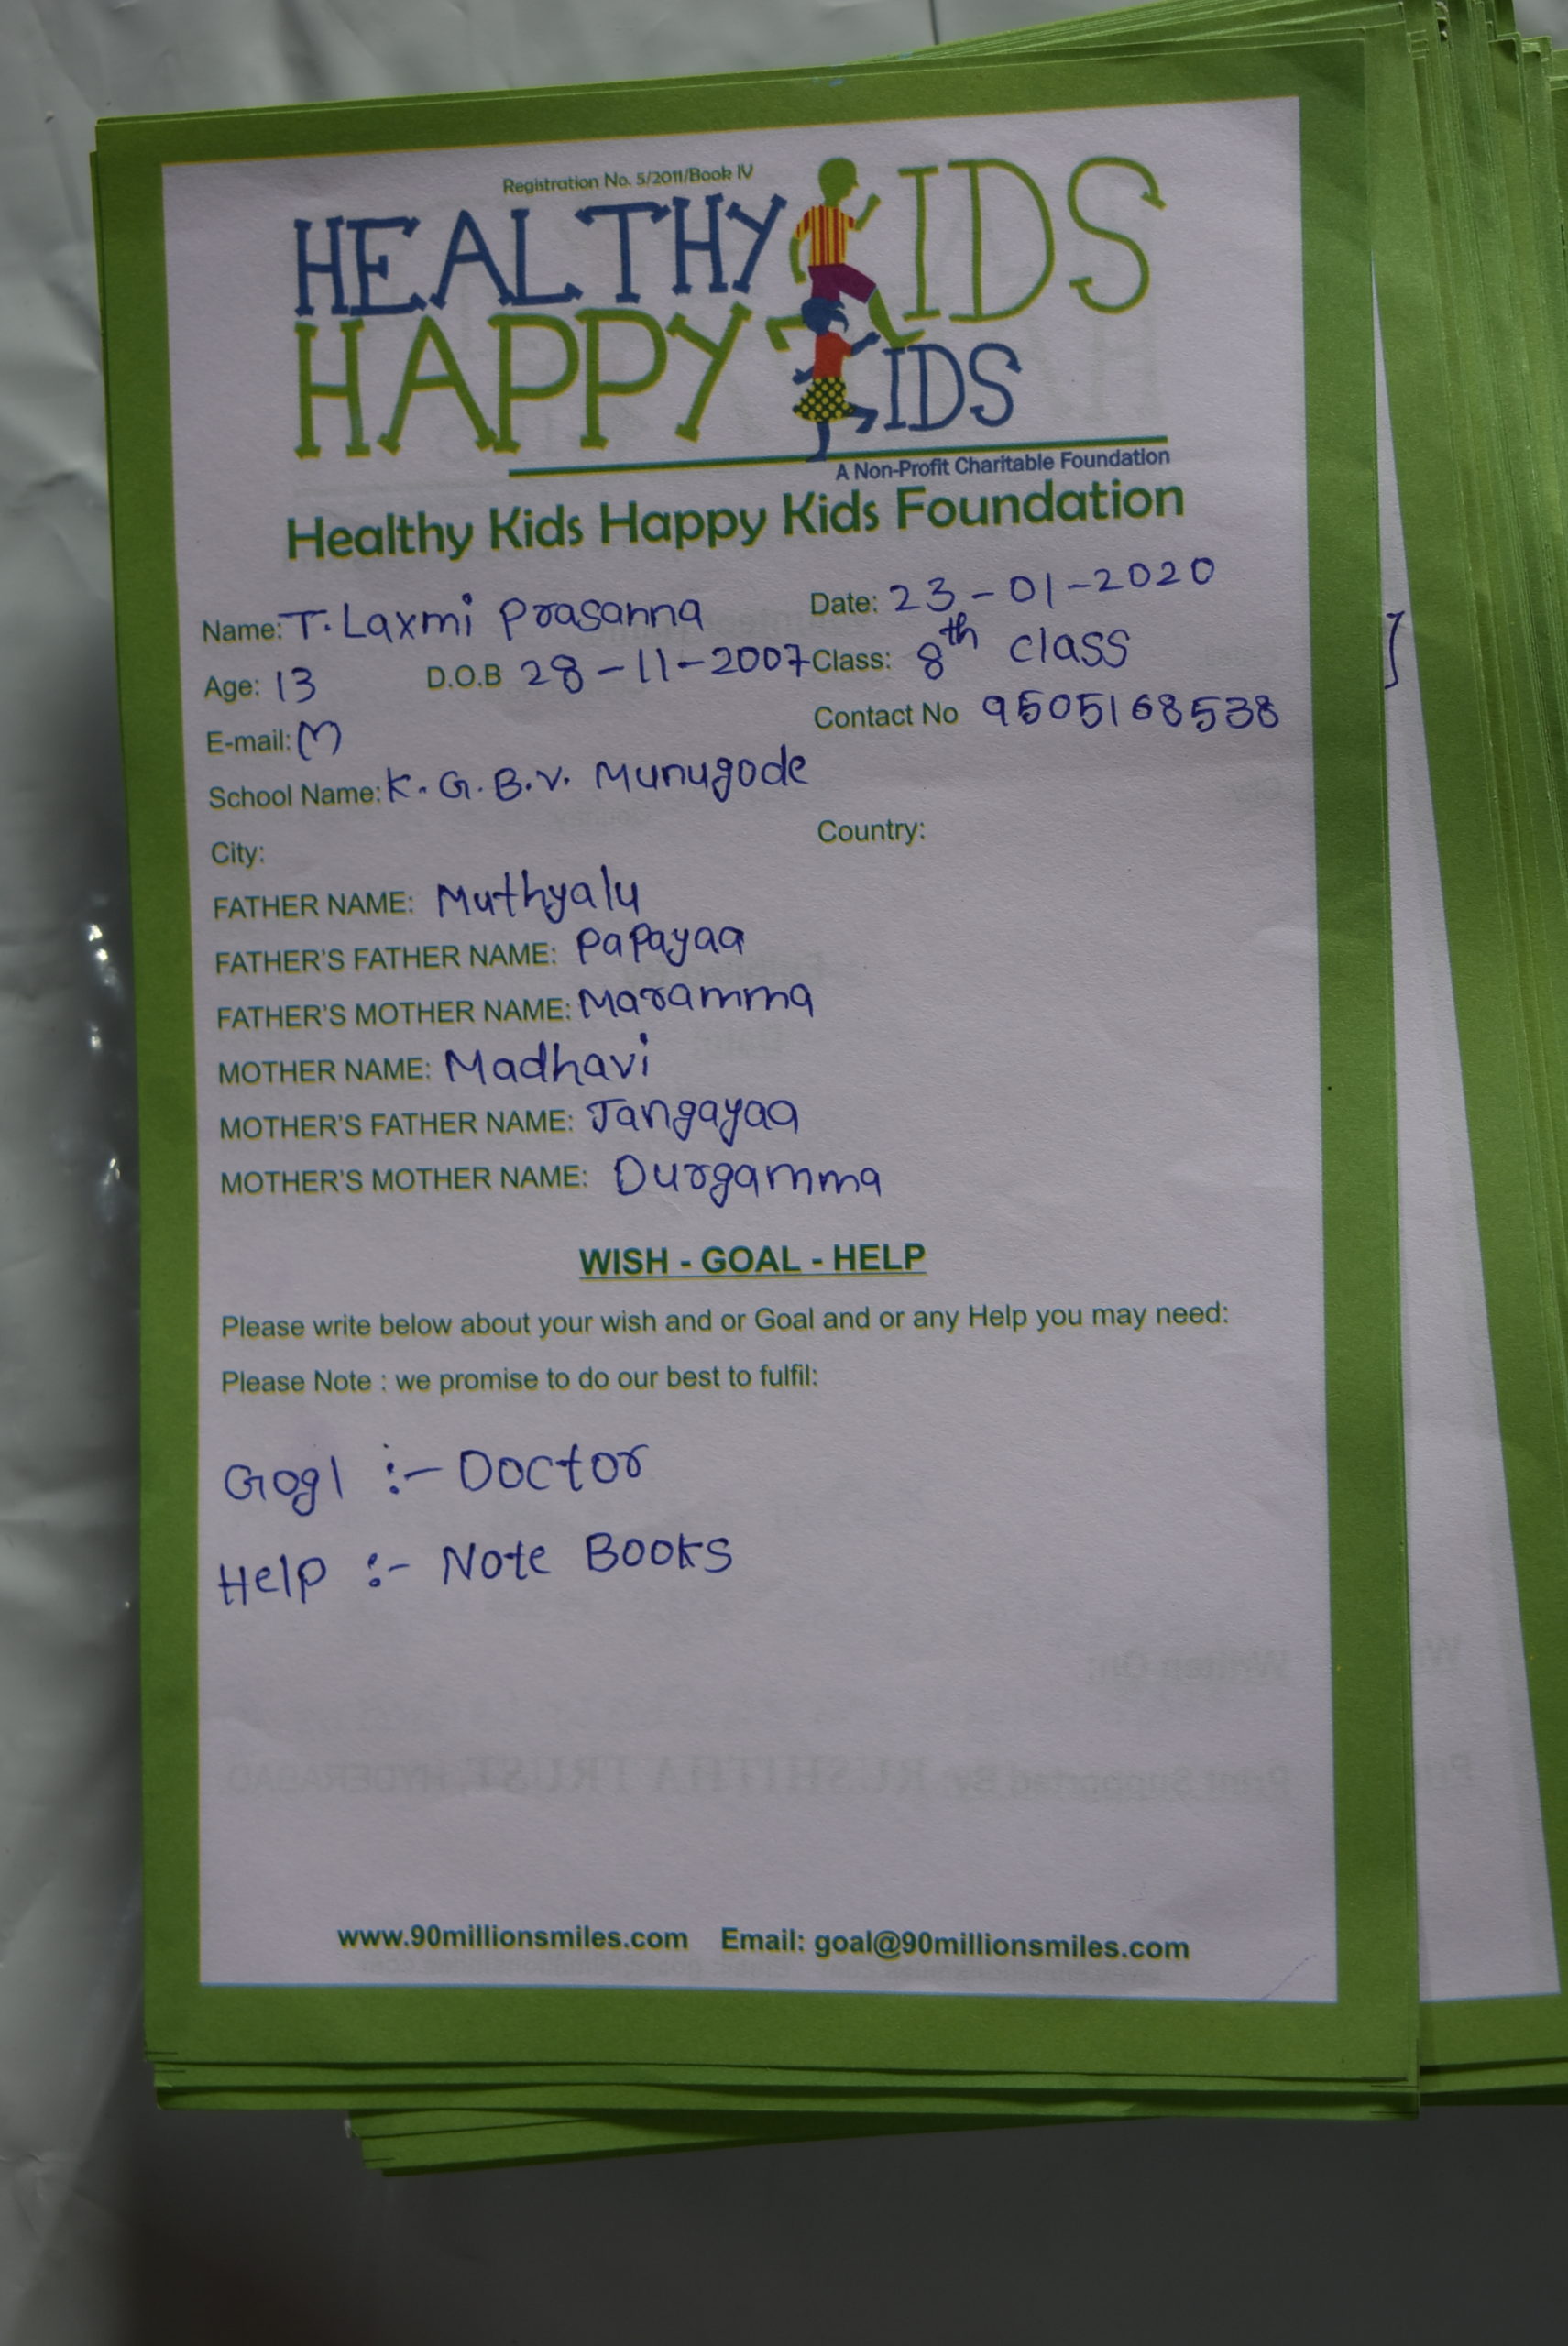 Registration No. 5/2011/Book IV
HEALTHY KIDS
HAPPY KIDS
A Non-Profit Charitable Foundation
Healthy Kids Happy Kids Foundation
Name: T. Laxmi Prasanna Date: 23-01-2020
Age: 13 D.O.B 28-11-2007 Class: 8th class
E-mail: Contact No 9505168538
School Name: K.G.B.V. Munugode
City: Country:
FATHER NAME: Muthyalu
FATHER'S FATHER NAME: Papayaa
FATHER'S MOTHER NAME: Maramma
MOTHER NAME: Madhavi
MOTHER'S FATHER NAME: Jangayaa
MOTHER'S MOTHER NAME: Durgamma
WISH - GOAL - HELP
Please write below about your wish and or Goal and or any Help you may need:
Please Note : we promise to do our best to fulfil:
Goal :- Doctor
Help :- Note Books
www.90millionsmiles.com Email: goal@90millionsmiles.com